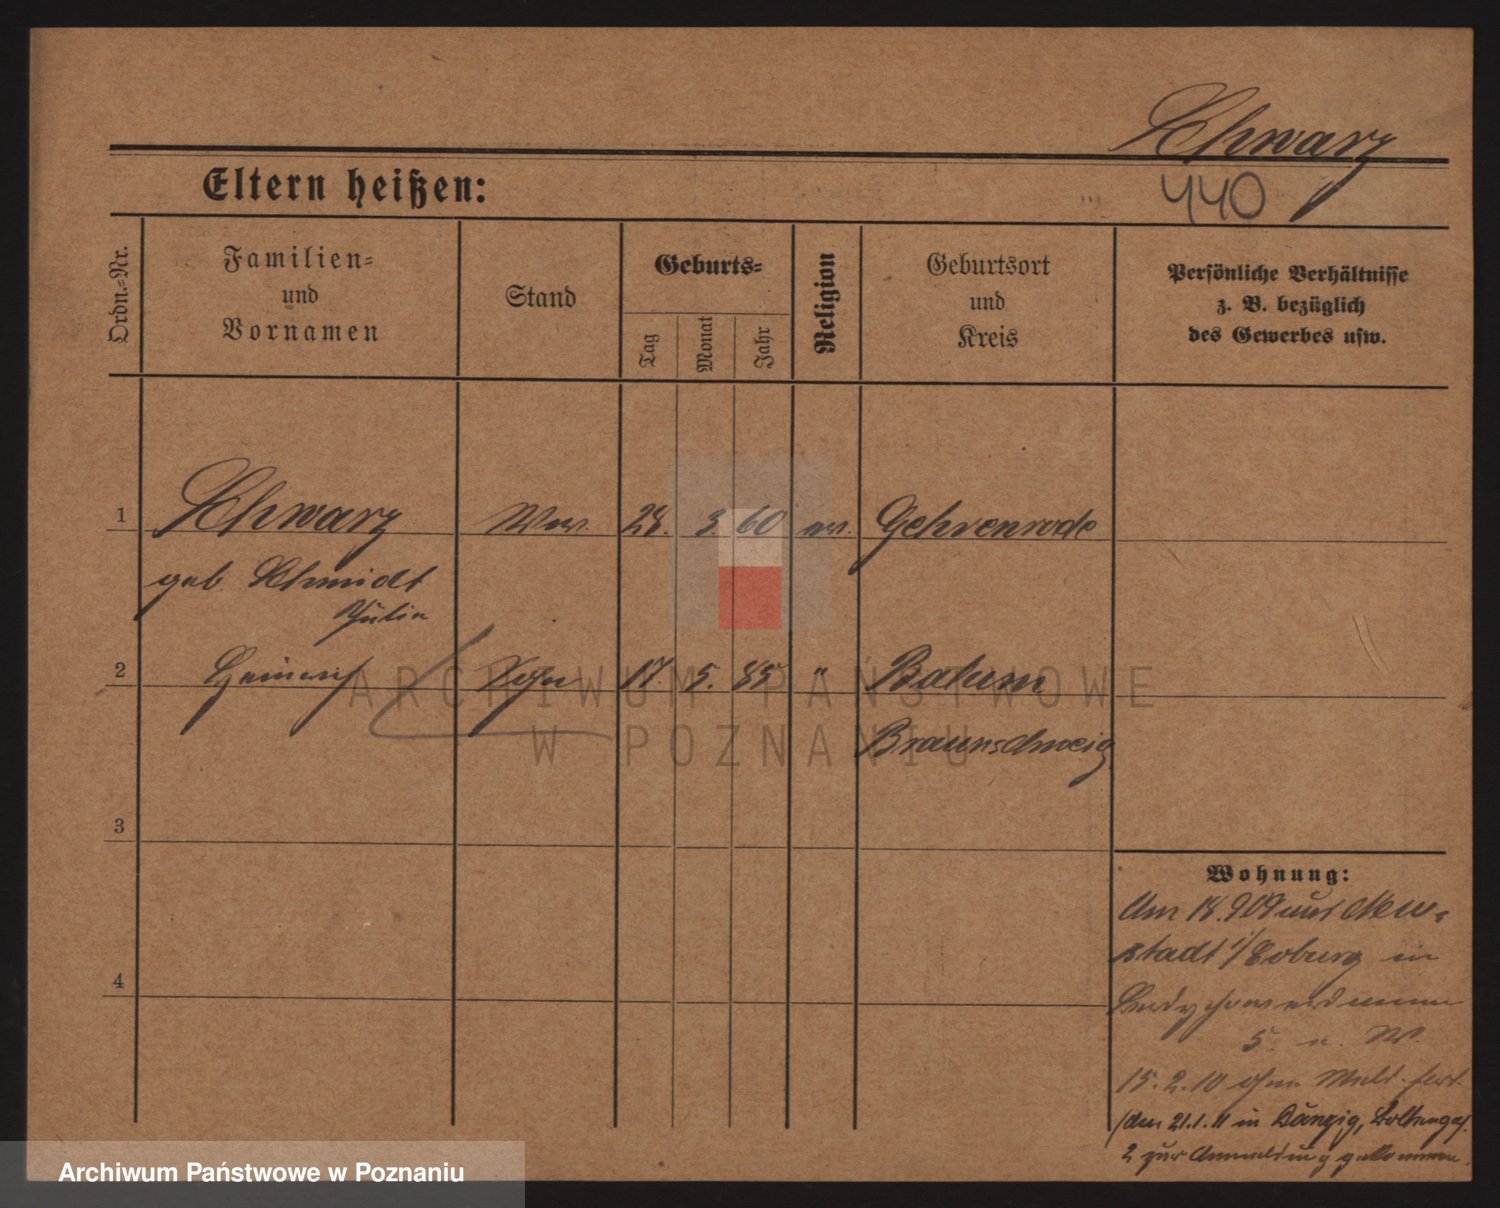 Schwarz
Eltern heißen:
440
Ordn.-Nr.
Familien-
und
Vornamen
Stand
Geburts-
Tag
Monat
Jahr
Religion
Geburtsort
und
Kreis
Persönliche Verhältnisse
z. B. bezüglich
des Gewerbes usw.
1 Schwarz Ww. 28. 3. 60 ev. Gehrenrode
geb. Schmidt
Julie
2 Heinrich Sohn 17. 5. 85 " Bakum
Braunschweig
3
4
Wohnung:
Am 18.9 09 aus Neu-
stadt i/Coburg in
5. u. W.
15.2.10 ohne Meld.
(den 21.1.11 in Danzig,
2 zur Anmeldung gekommen.
ARCHIWUM PAŃSTWOWE
W POZNANIU
Archiwum Państwowe w Poznaniu